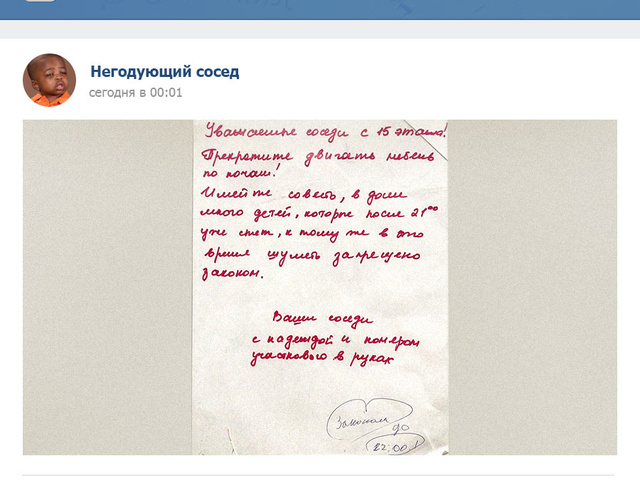 Негодующий сосед
сегодня в 00:01
Уважаемые соседи с 15 этажа!
Прекратите двигать мебель
по ночам!
Имейте совесть, в доме
много детей, которые после 21⁰⁰
уже спят, к тому же в это
время шуметь запрещено
законом.
Ваши соседи
с надеждой и номером
участкового в руках
Законом
до
22:00!